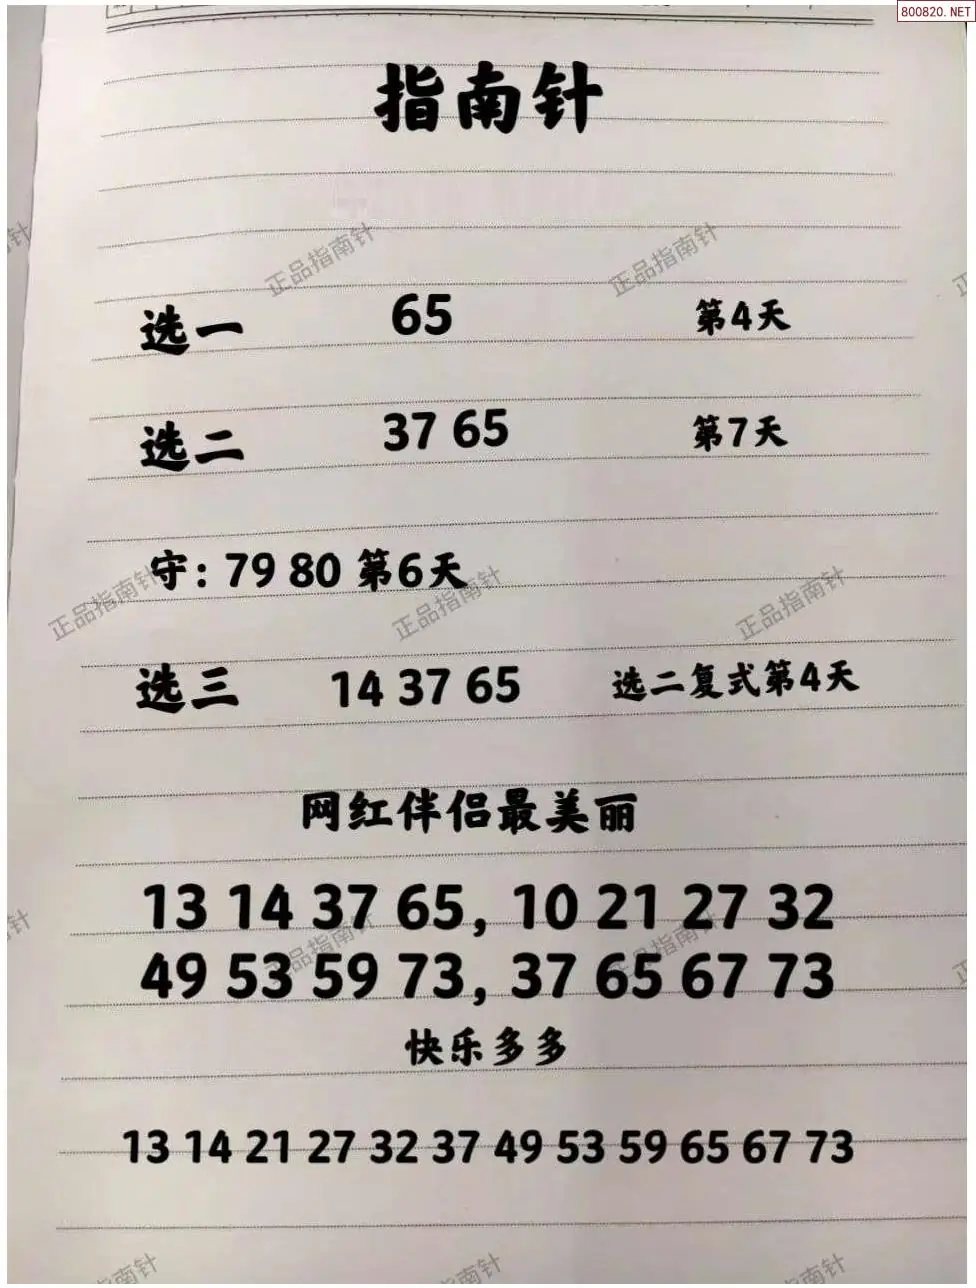 800820.NET
指南针
正品指南针 正品指南针
选一 65 第4天
选二 37 65 第7天
守：79 80 第6天
正品指南针 正品指南针 正品指南针
选三 14 37 65 选二复式第4天
网红伴侣最美丽
13 14 37 65，10 21 27 32
正品指南针 正品指南针
49 53 59 73，37 65 67 73
快乐多多
13 14 21 27 32 37 49 53 59 65 67 73